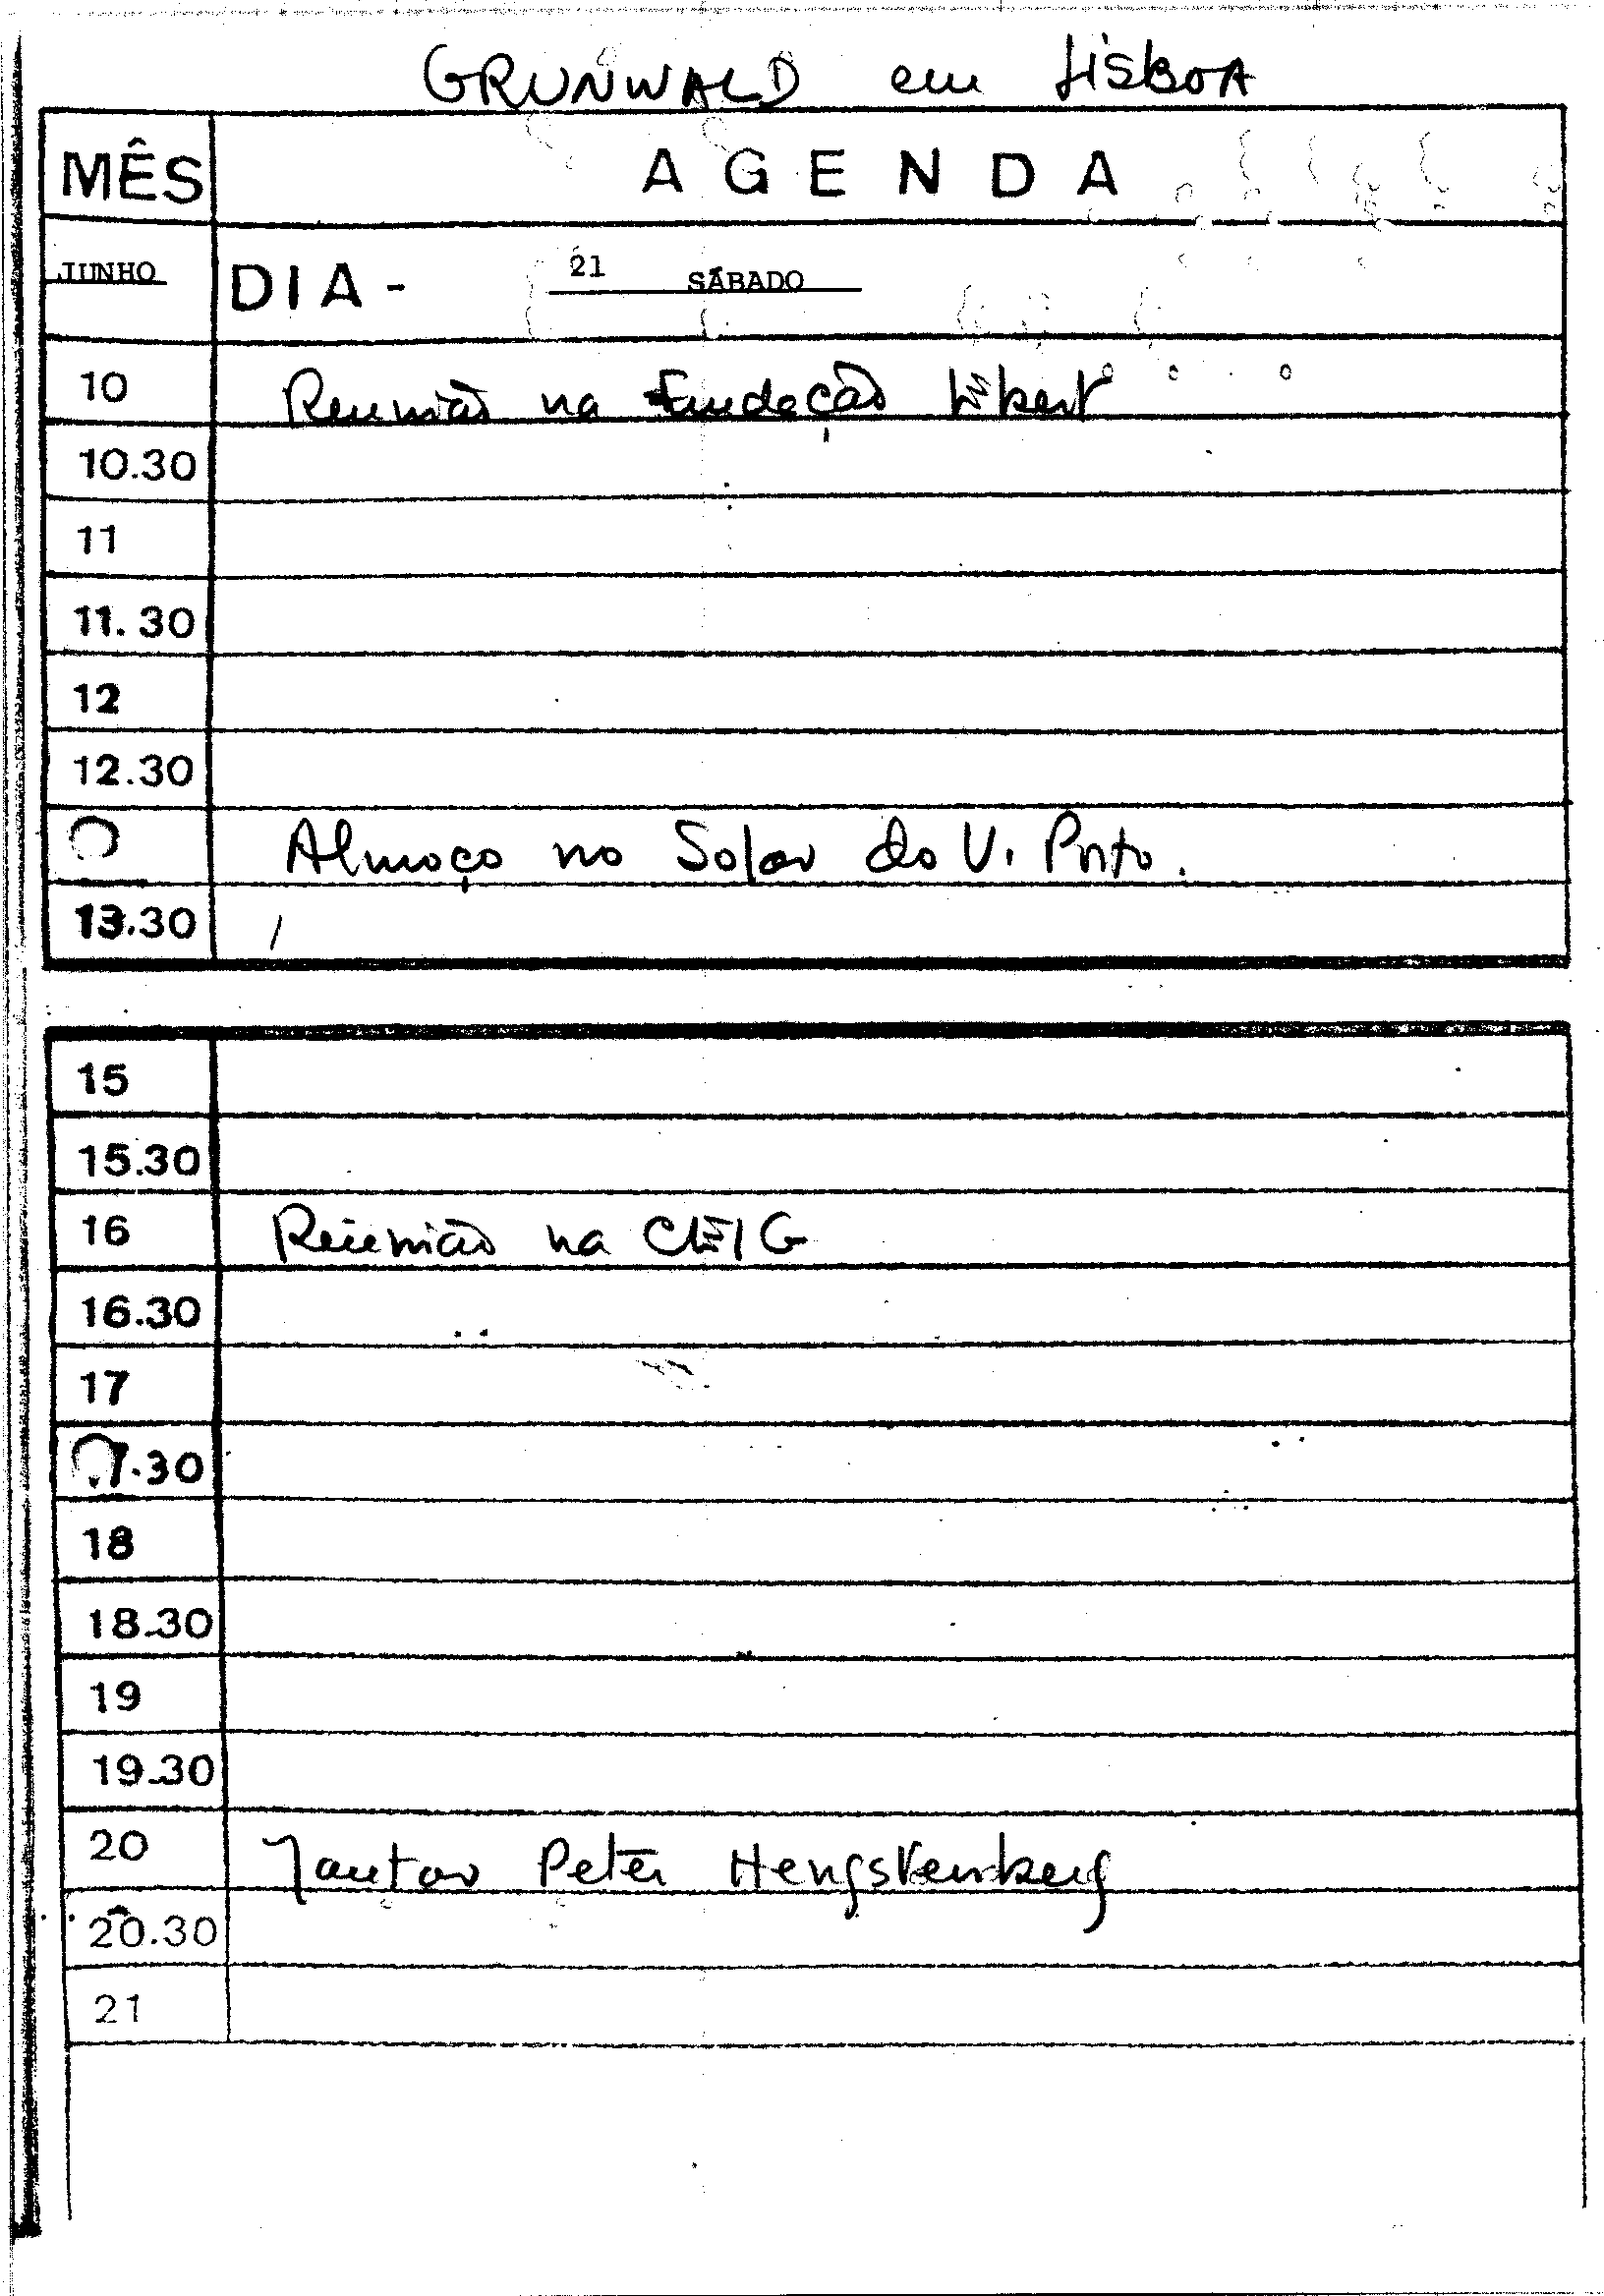 GRUNWALD em LISBOA
MÊS AGENDA
JUNHO DIA - 21 SÁBADO
10 Reunião na Fundação
10.30
11
11.30
12
12.30
Almoço no Solar do V. Porto.
13.30
15
15.30
16 Reunião na
16.30
17
7.30
18
18.30
19
19.30
20 Jantar Peter Hengstenberg
20.30
21